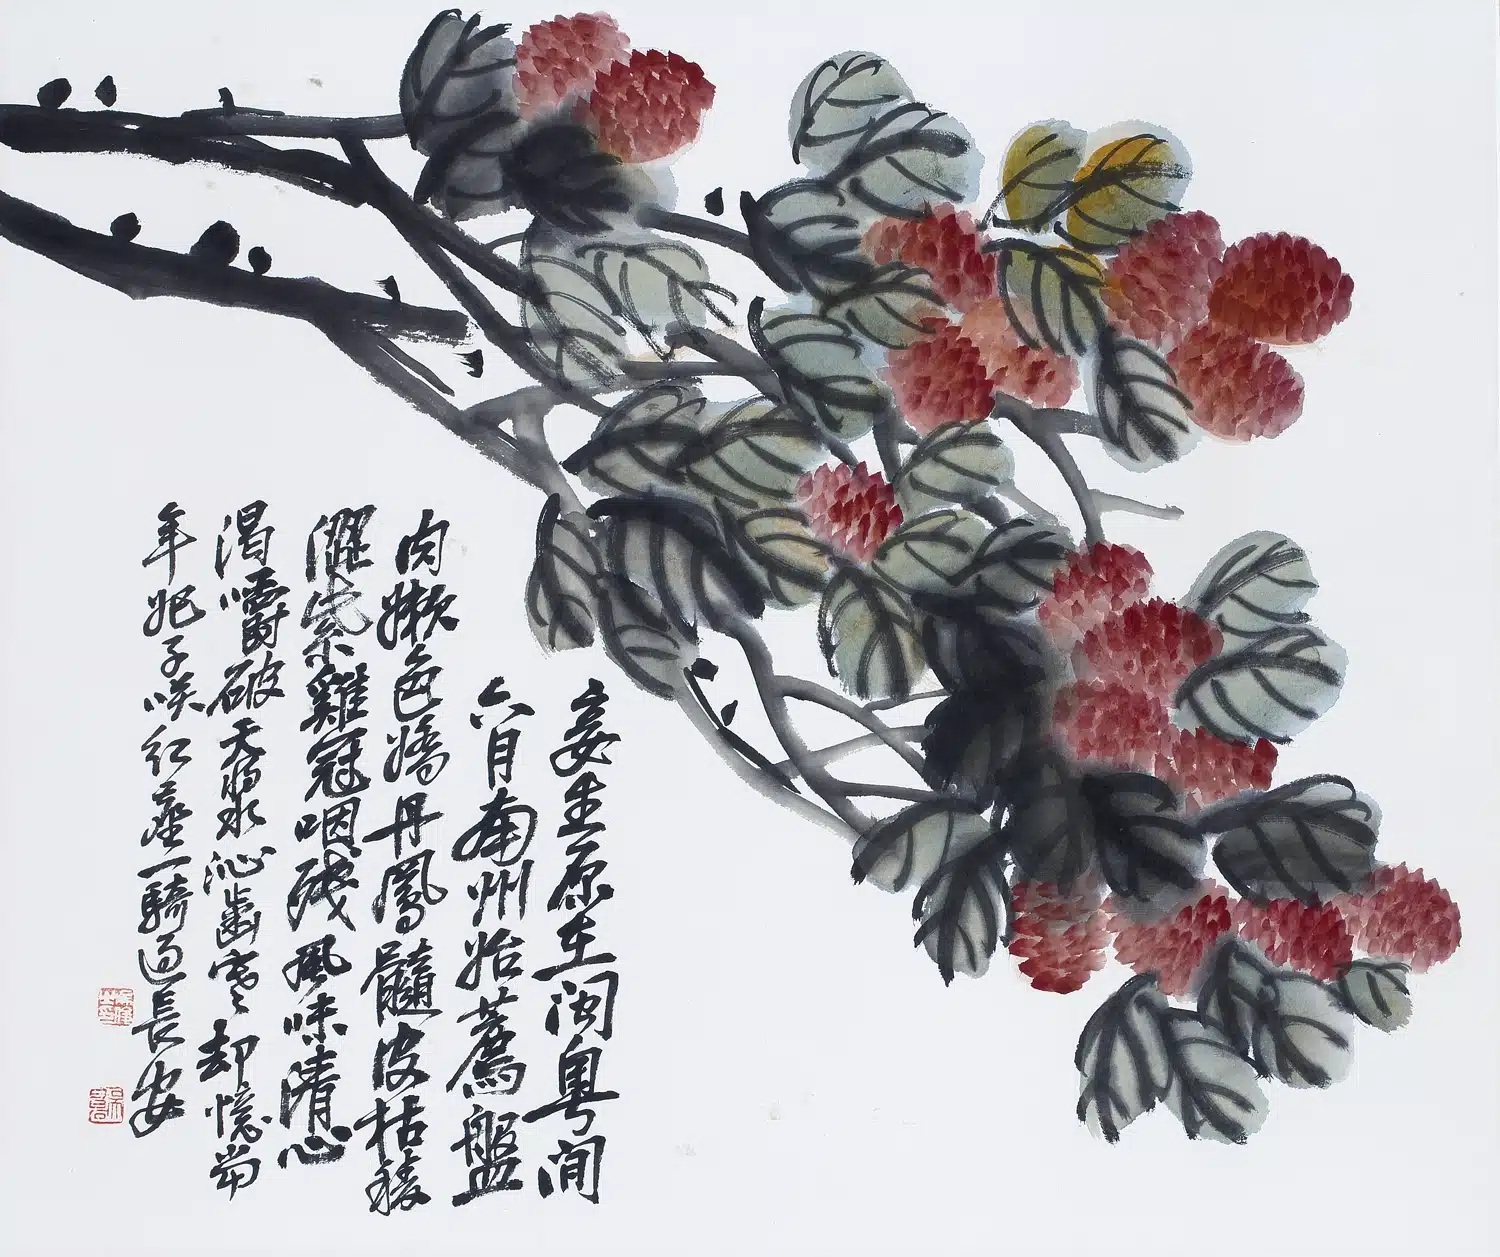 妾生原在閩粵間
六月南州始薦盤
肉嫩色嬌丹鳳髓皮枯稜
澀紫雞冠咽殘風味清心
渴嚼破天漿沁齒寒却憶當
年妃子咲紅塵一騎過長安